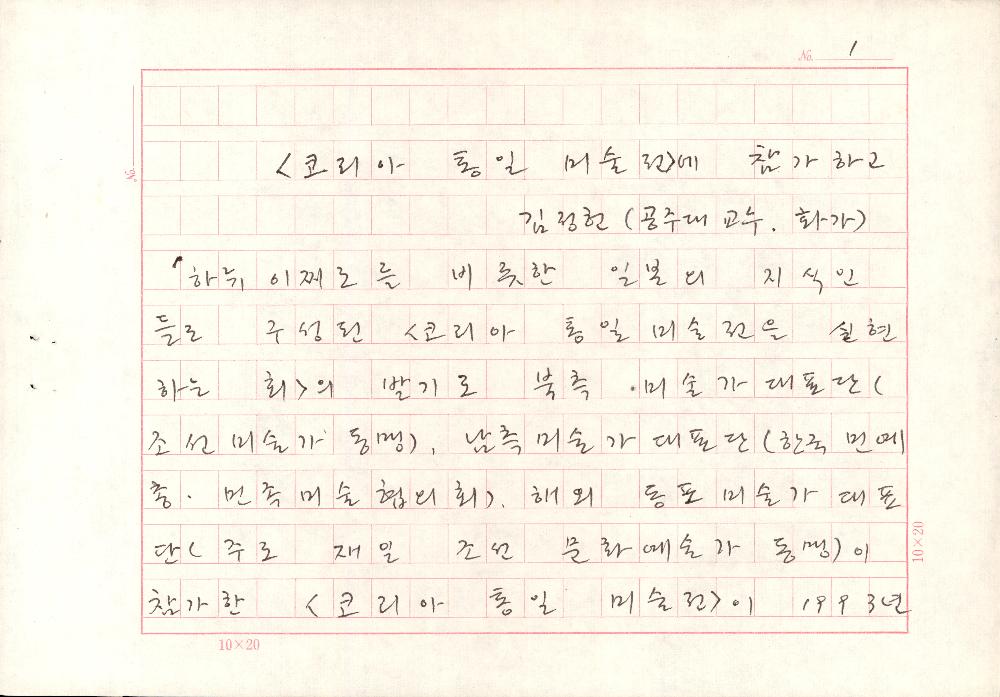 No. 1
<코리아 통일 미술전>에 참가하고
김정헌 (공주대 교수. 화가)
하뉴 이찌로를 비롯한 일본의 지식인
들로 구성된 <코리아 통일 미술전을 실현
하는 회>의 발기로 북측 미술가 대표단(
조선미술가 동맹), 남측미술가 대표단(한국 민예
총. 민족미술협의회), 해외 동포미술가 대표
단( 주로 재일 조선 문화예술가 동맹)이
참가한 <코리아 통일 미술전>이 1993년
10×20
10×20
No.